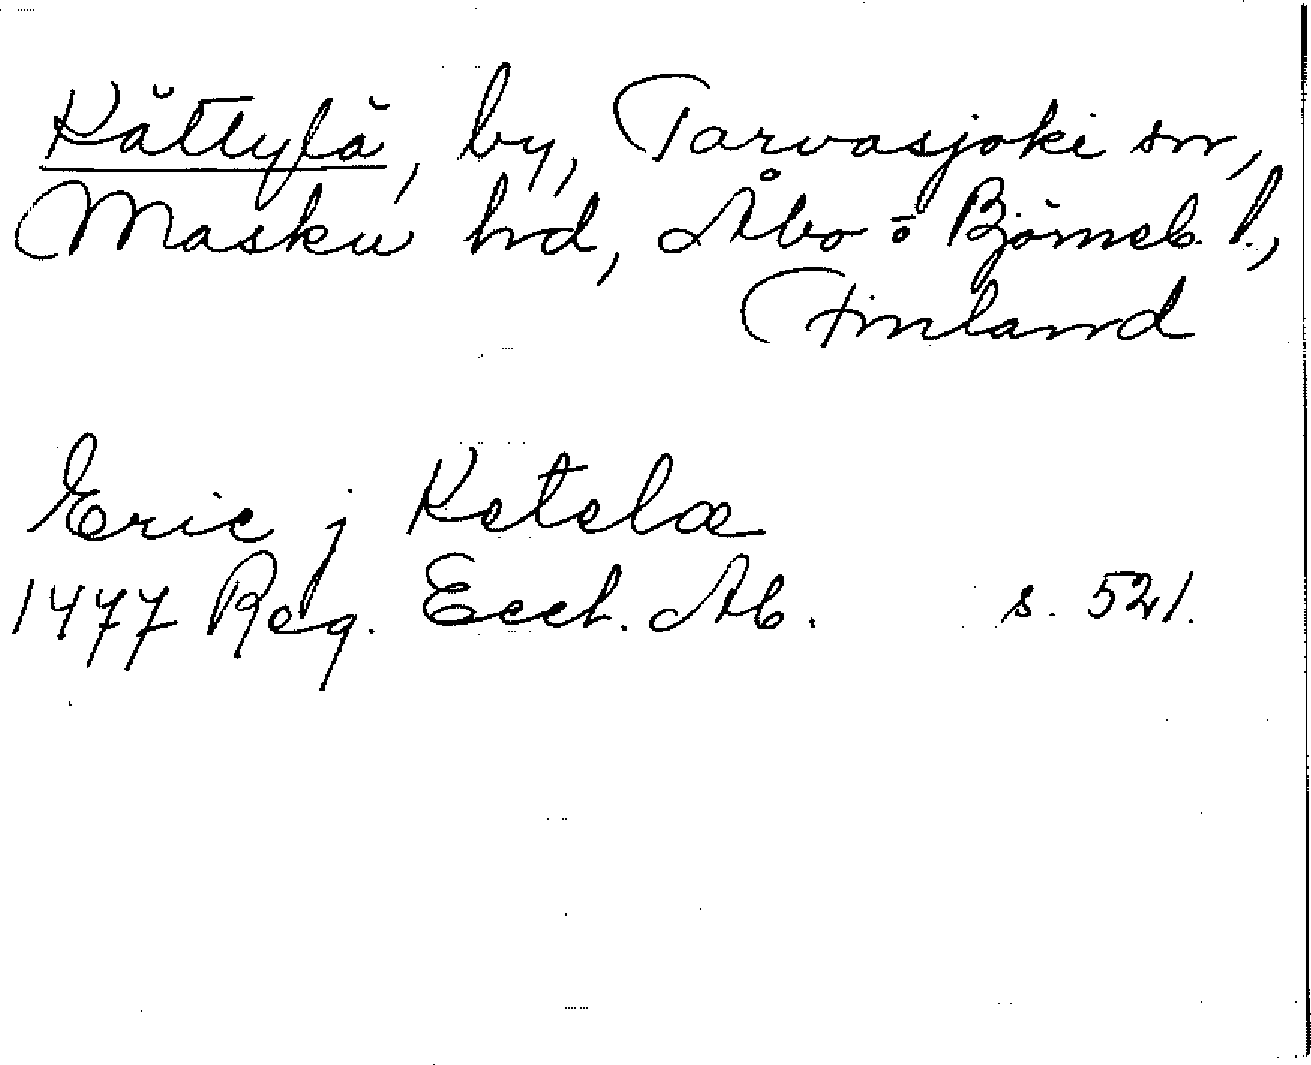 Kättylä, by, Tarvasjoki sn,
Masku hd, Åbo o Björneb. l.,
Finland
Eric j Ketelæ
1477 Reg. Eccl. Ab. s. 521.